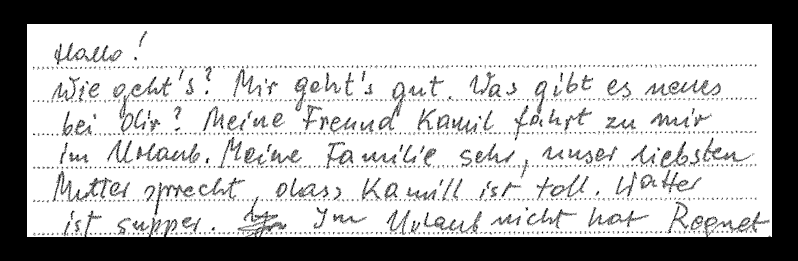 Hallo!
Wie geht's? Mir geht's gut. Was gibt es neues
bei Dir? Meine Freund Kamil fährt zu mir
im Urlaub. Meine Familie sehr, unser liebsten
Mutter sprecht, dass Kamill ist toll. Watter
ist supper. Im Urlaub nicht hat Regnet